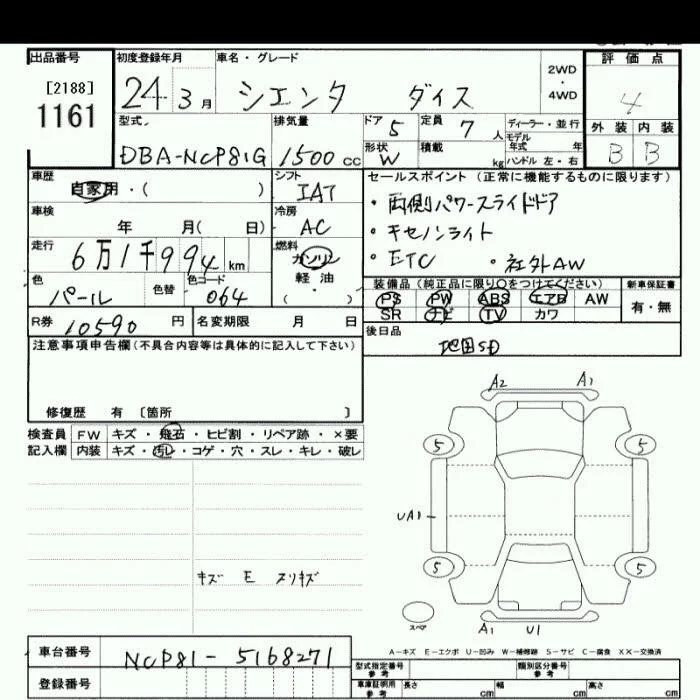 出品番号
[2188]
1161
初度登録年月
24 3月
車名・グレード
シエンタ ダイス
2WD
・
4WD
評価点
4
外装 内装
B B
型式
DBA-NCP81G
排気量
1500 cc
ドア 5
定員 7 人
ディーラー・並行
モデル
年式 年
形状 W
積載 kg
ハンドル 左・右
車歴
自家用・( )
シフト
IAT
車検
年 月( 日)
冷房
AC
走行
6万1千994 km
燃料
ガソリン
軽・油
・
( )
色
パール
色替
色コード
064
R券 10590 円
名変期限 月 日
セールスポイント (正常に機能するものに限ります)
・両側パワースライドドア
・キセノンライト
・ETC ・社外AW
装備品(純正品に限り○をつけてください)
新車保証書
PS PW ABS エアB AW
SR ナビ TV カワ
有・無
後日品
地図SD
注意事項申告欄(不具合内容等は具体的に記入して下さい)
修復歴 有 〔箇所 〕
検査員
記入欄
FW キズ・飛石・ヒビ割・リペア跡・×要
内装 キズ・汚レ・コゲ・穴・スレ・キレ・破レ
キズ E スリキズ
A2 A1
5 5
UA1
5 5
スペア
A1 U1
A-キズ E-エクボ U-凹み W-補修跡 S-サビ C-腐食 XX-交換済
車台番号
NCP81-5168271
登録番号
型式指定番号
参考
類別区分番号
参考
車庫証明用
参考
長さ cm
幅 cm
高さ cm